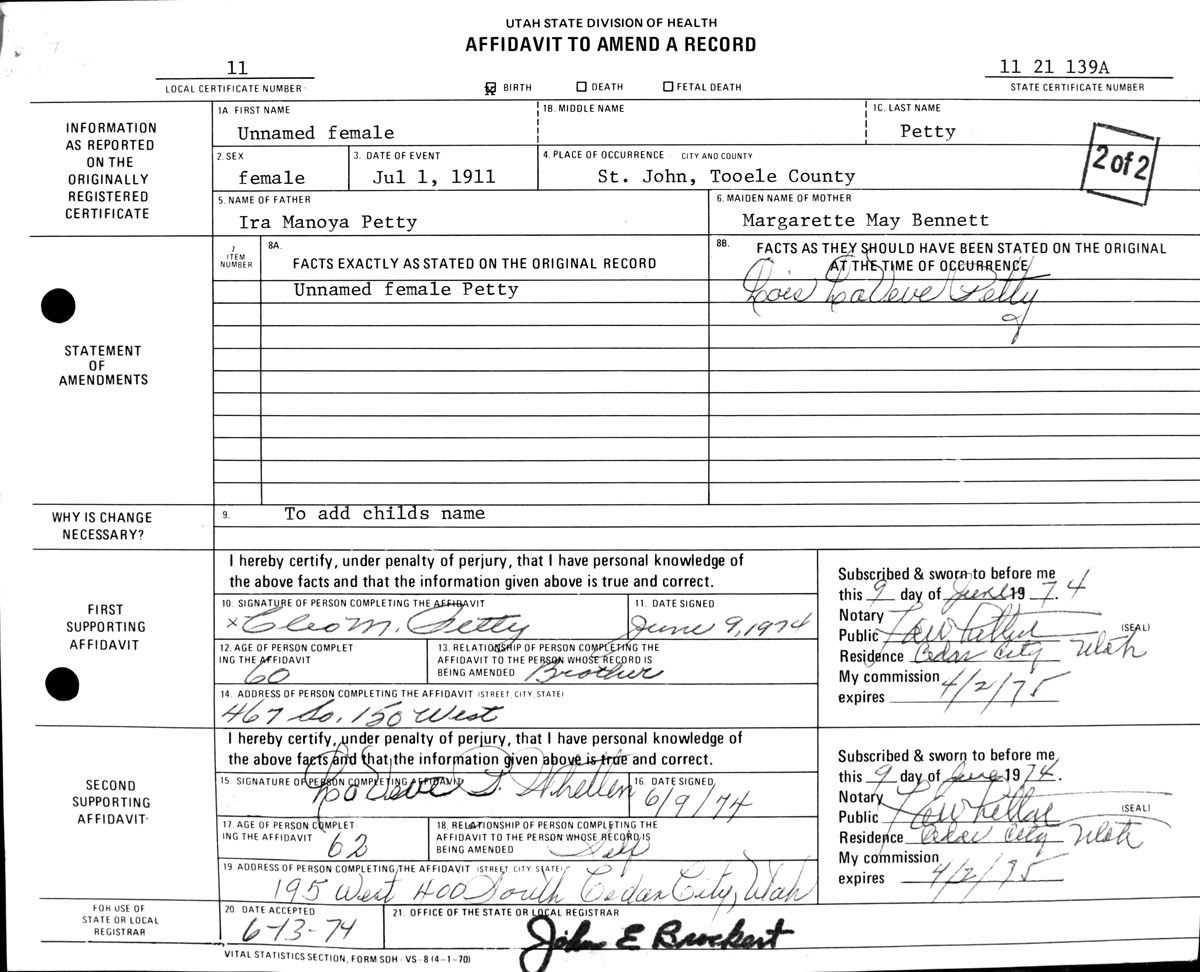 UTAH STATE DIVISION OF HEALTH
AFFIDAVIT TO AMEND A RECORD
11
LOCAL CERTIFICATE NUMBER
BIRTH DEATH FETAL DEATH
11 21 139A
STATE CERTIFICATE NUMBER
INFORMATION
AS REPORTED
ON THE
ORIGINALLY
REGISTERED
CERTIFICATE
1A. FIRST NAME
Unnamed female
1B. MIDDLE NAME
1C. LAST NAME
Petty
2. SEX
female
3. DATE OF EVENT
Jul 1, 1911
4. PLACE OF OCCURRENCE CITY AND COUNTY
St. John, Tooele County
2 of 2
5. NAME OF FATHER
Ira Manoya Petty
6. MAIDEN NAME OF MOTHER
Margarette May Bennett
STATEMENT
OF
AMENDMENTS
7
ITEM
NUMBER
8A.
FACTS EXACTLY AS STATED ON THE ORIGINAL RECORD
Unnamed female Petty
8B. FACTS AS THEY SHOULD HAVE BEEN STATED ON THE ORIGINAL
AT THE TIME OF OCCURRENCE
Lois LaVeve Petty
WHY IS CHANGE
NECESSARY?
9. To add childs name
FIRST
SUPPORTING
AFFIDAVIT
I hereby certify, under penalty of perjury, that I have personal knowledge of
the above facts and that the information given above is true and correct.
10. SIGNATURE OF PERSON COMPLETING THE AFFIDAVIT
x Cleo M. Petty
11. DATE SIGNED
June 9, 1974
12. AGE OF PERSON COMPLET
ING THE AFFIDAVIT
60
13. RELATIONSHIP OF PERSON COMPLETING THE
AFFIDAVIT TO THE PERSON WHOSE RECORD IS
BEING AMENDED Brother
14. ADDRESS OF PERSON COMPLETING THE AFFIDAVIT (STREET, CITY, STATE)
467 So. 150 West
Subscribed & sworn to before me
this 9 day of June 19 74
Notary
Public (SEAL)
Residence Cedar City Utah
My commission
expires 4/2/75
SECOND
SUPPORTING
AFFIDAVIT
I hereby certify, under penalty of perjury, that I have personal knowledge of
the above facts and that the information given above is true and correct.
15. SIGNATURE OF PERSON COMPLETING AFFIDAVIT
LaVeve P. Whetten
16. DATE SIGNED
6/9/74
17. AGE OF PERSON COMPLET
ING THE AFFIDAVIT
62
18. RELATIONSHIP OF PERSON COMPLETING THE
AFFIDAVIT TO THE PERSON WHOSE RECORD IS
BEING AMENDED Self
19. ADDRESS OF PERSON COMPLETING THE AFFIDAVIT (STREET, CITY, STATE)
195 West 400 South Cedar City, Utah
Subscribed & sworn to before me
this 9 day of June 1974
Notary
Public (SEAL)
Residence Cedar City Utah
My commission
expires 4/2/75
FOR USE OF
STATE OR LOCAL
REGISTRAR
20. DATE ACCEPTED
6-13-74
21. OFFICE OF THE STATE OR LOCAL REGISTRAR
John E Brockert
VITAL STATISTICS SECTION, FORM SDH-VS-8 (4-1-70)